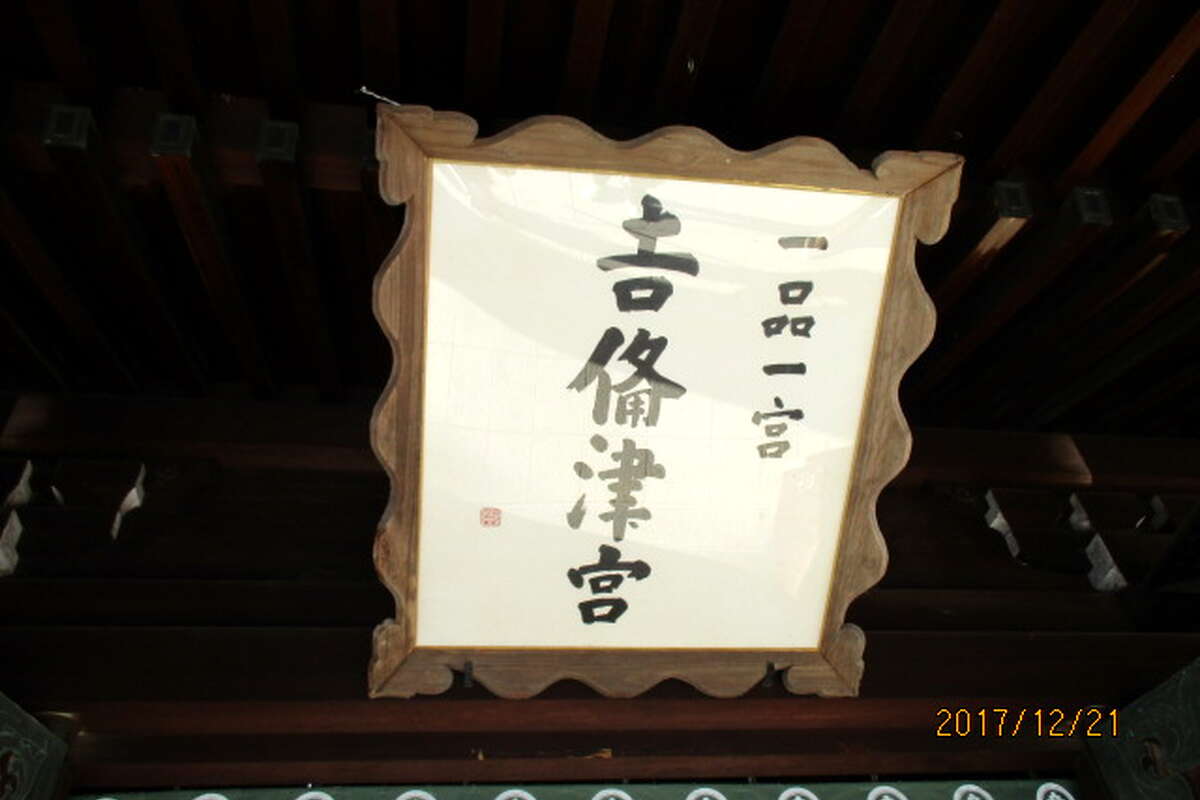 一品一宮
吉備津宮
2017/12/21